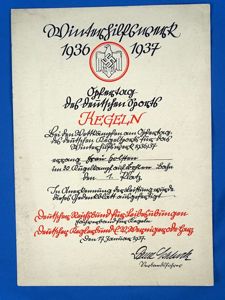 Winterhilfswerk
1936 1937
Opfertag
des deutschen Sports
KEGELN
Bei den Wettkämpfen am Opfertag
des deutschen Kegelsports für das
Winterhilfswerk 1936/37
errang Frau
im 20 Kugelkampf auf Bahn
den 1. Platz
In Anerkennung der Leistung wurde
dieses Gedenkblatt ausgefertigt
Deutscher Reichsbund für Leibesübungen
Deutscher Keglerbund
Den 17. Januar 1937.